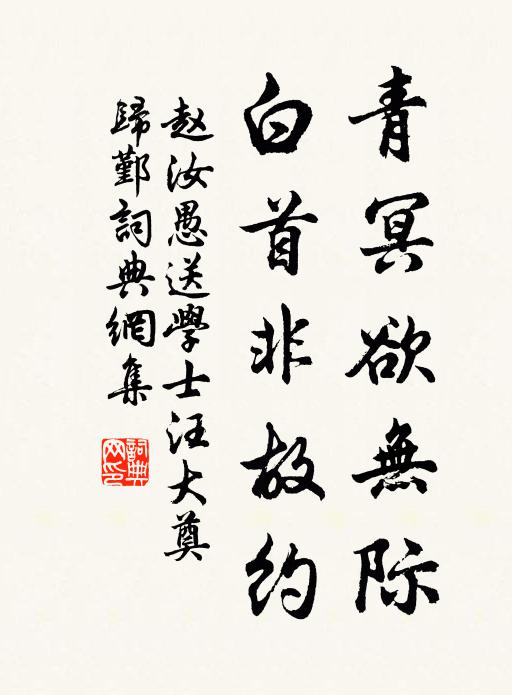 青冥欲無际
白首非故约
赵汝愚送學士汪大奠
歸鄞詞典網集
詞典网印